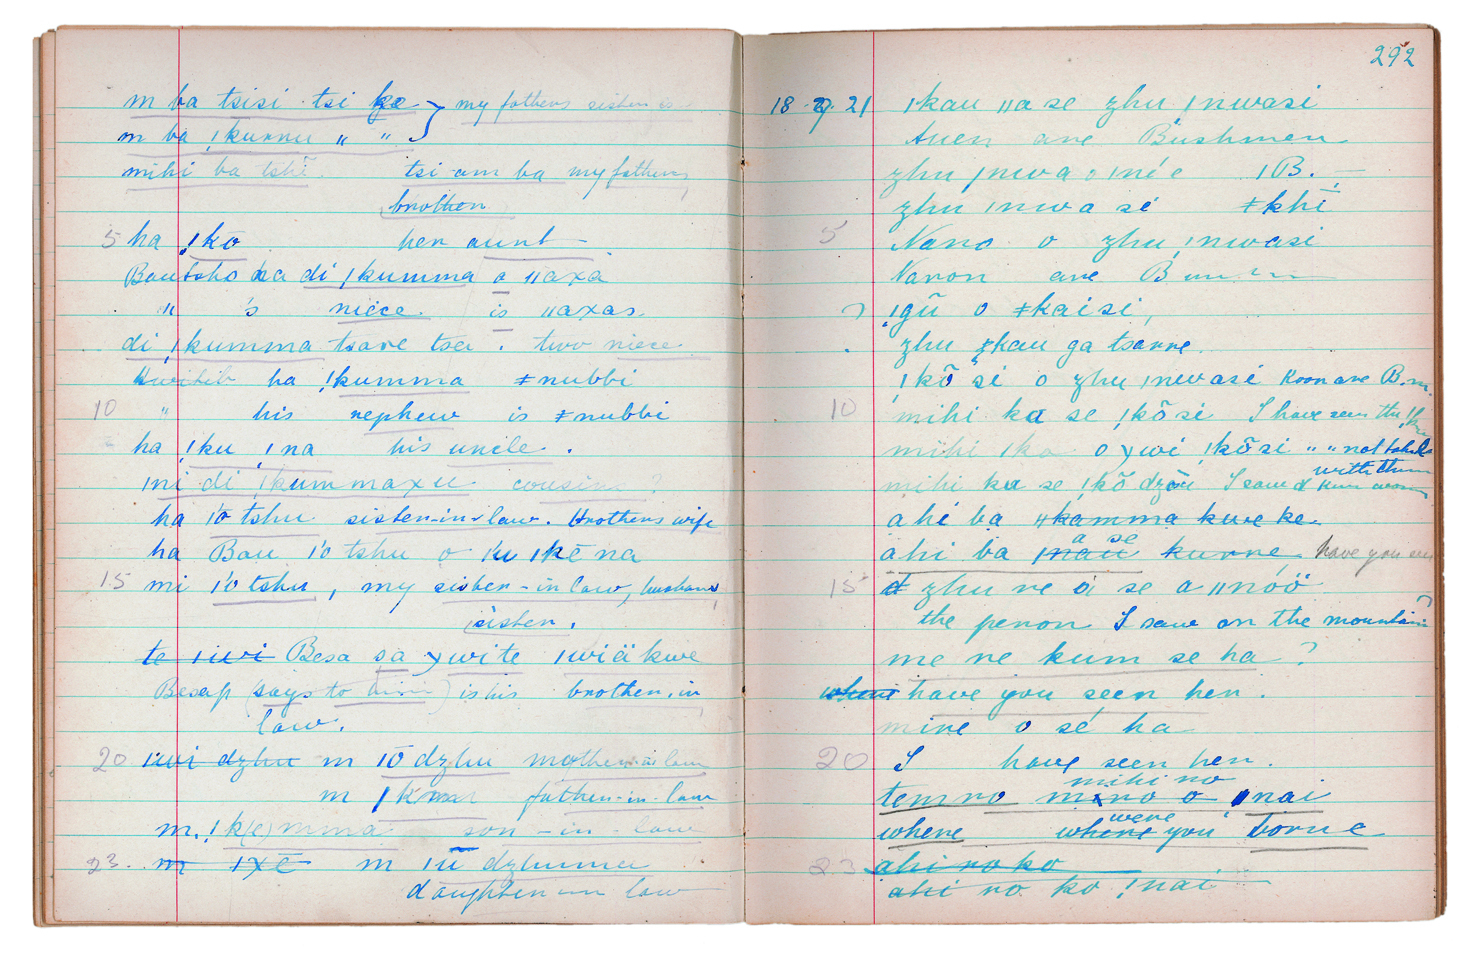 m ba tsisi tsi ge } my fathers sister
m ba ǃkurnu " "
mihi ba tshĕ. tsi-am ba my fathers
brother
5 ha ǃkō her aunt
Bautsho ka di ǀkumma o ǁaxa
" 's niece is ǁaxas
di ǀkumma tsare tsa. two niece
Kwitib ha ǃkumma ǂnubbi
10 " his nephew is ǂnubbi
ha ǃku ǃna his uncle.
mi di ǀkummaxu cousin ?
ha ǀo tshu sister-in-law. Brothers wife
ha Bau ǀo tshu o ku ǀkē na
15 mi ǀo tshu, my sister-in-law, husbands
sister.
te ǀiwi Besa sa ywite ǀwiä kwe
Besap (says to him) is his brother in
law.
20 ǀwi dzhu m ǀō dzhu mother-in-law
m ǀk father-in-law
m. ǃk(e)mma son-in-law
23. m ǀxē m ǀū dzhumma
daughter in law
292
18.9.21 ǀkau ǁa se zhu ǀnwasi
Auen are Bushmen
zhu ǀnwa o iné e ǀB.
zhu ǀnwa sé ǂkhi
5 Naro o zhu ǀnwasi
Naron are B
? ǃgū o ǂkaisi,
zhu ǂkau ga tsarre.
ǃkõ sé o zhu ǀnwasé Koon are B.m.
10 mihi ka se ǃkõ sé I have seen the
mihi ǀka o ywé ǃkõsi " " not talked
with them
mihi ka se ǃkõ dzŏu I saw d kun woman
ahi ba ǁkamma kwe ke
a se
ahi ba ǀnau kurre have you seen
15 zhu re o se a ǁnŏŏ
the person I saw on the mountain ?
me re kum se ha ?
where have you seen her.
mire o sé ha
20 I have seen her.
mihi ro
temro m ro o ǀnai
were
where where you borne
23 ahi ro ko
ahi ro ko, ǃnai